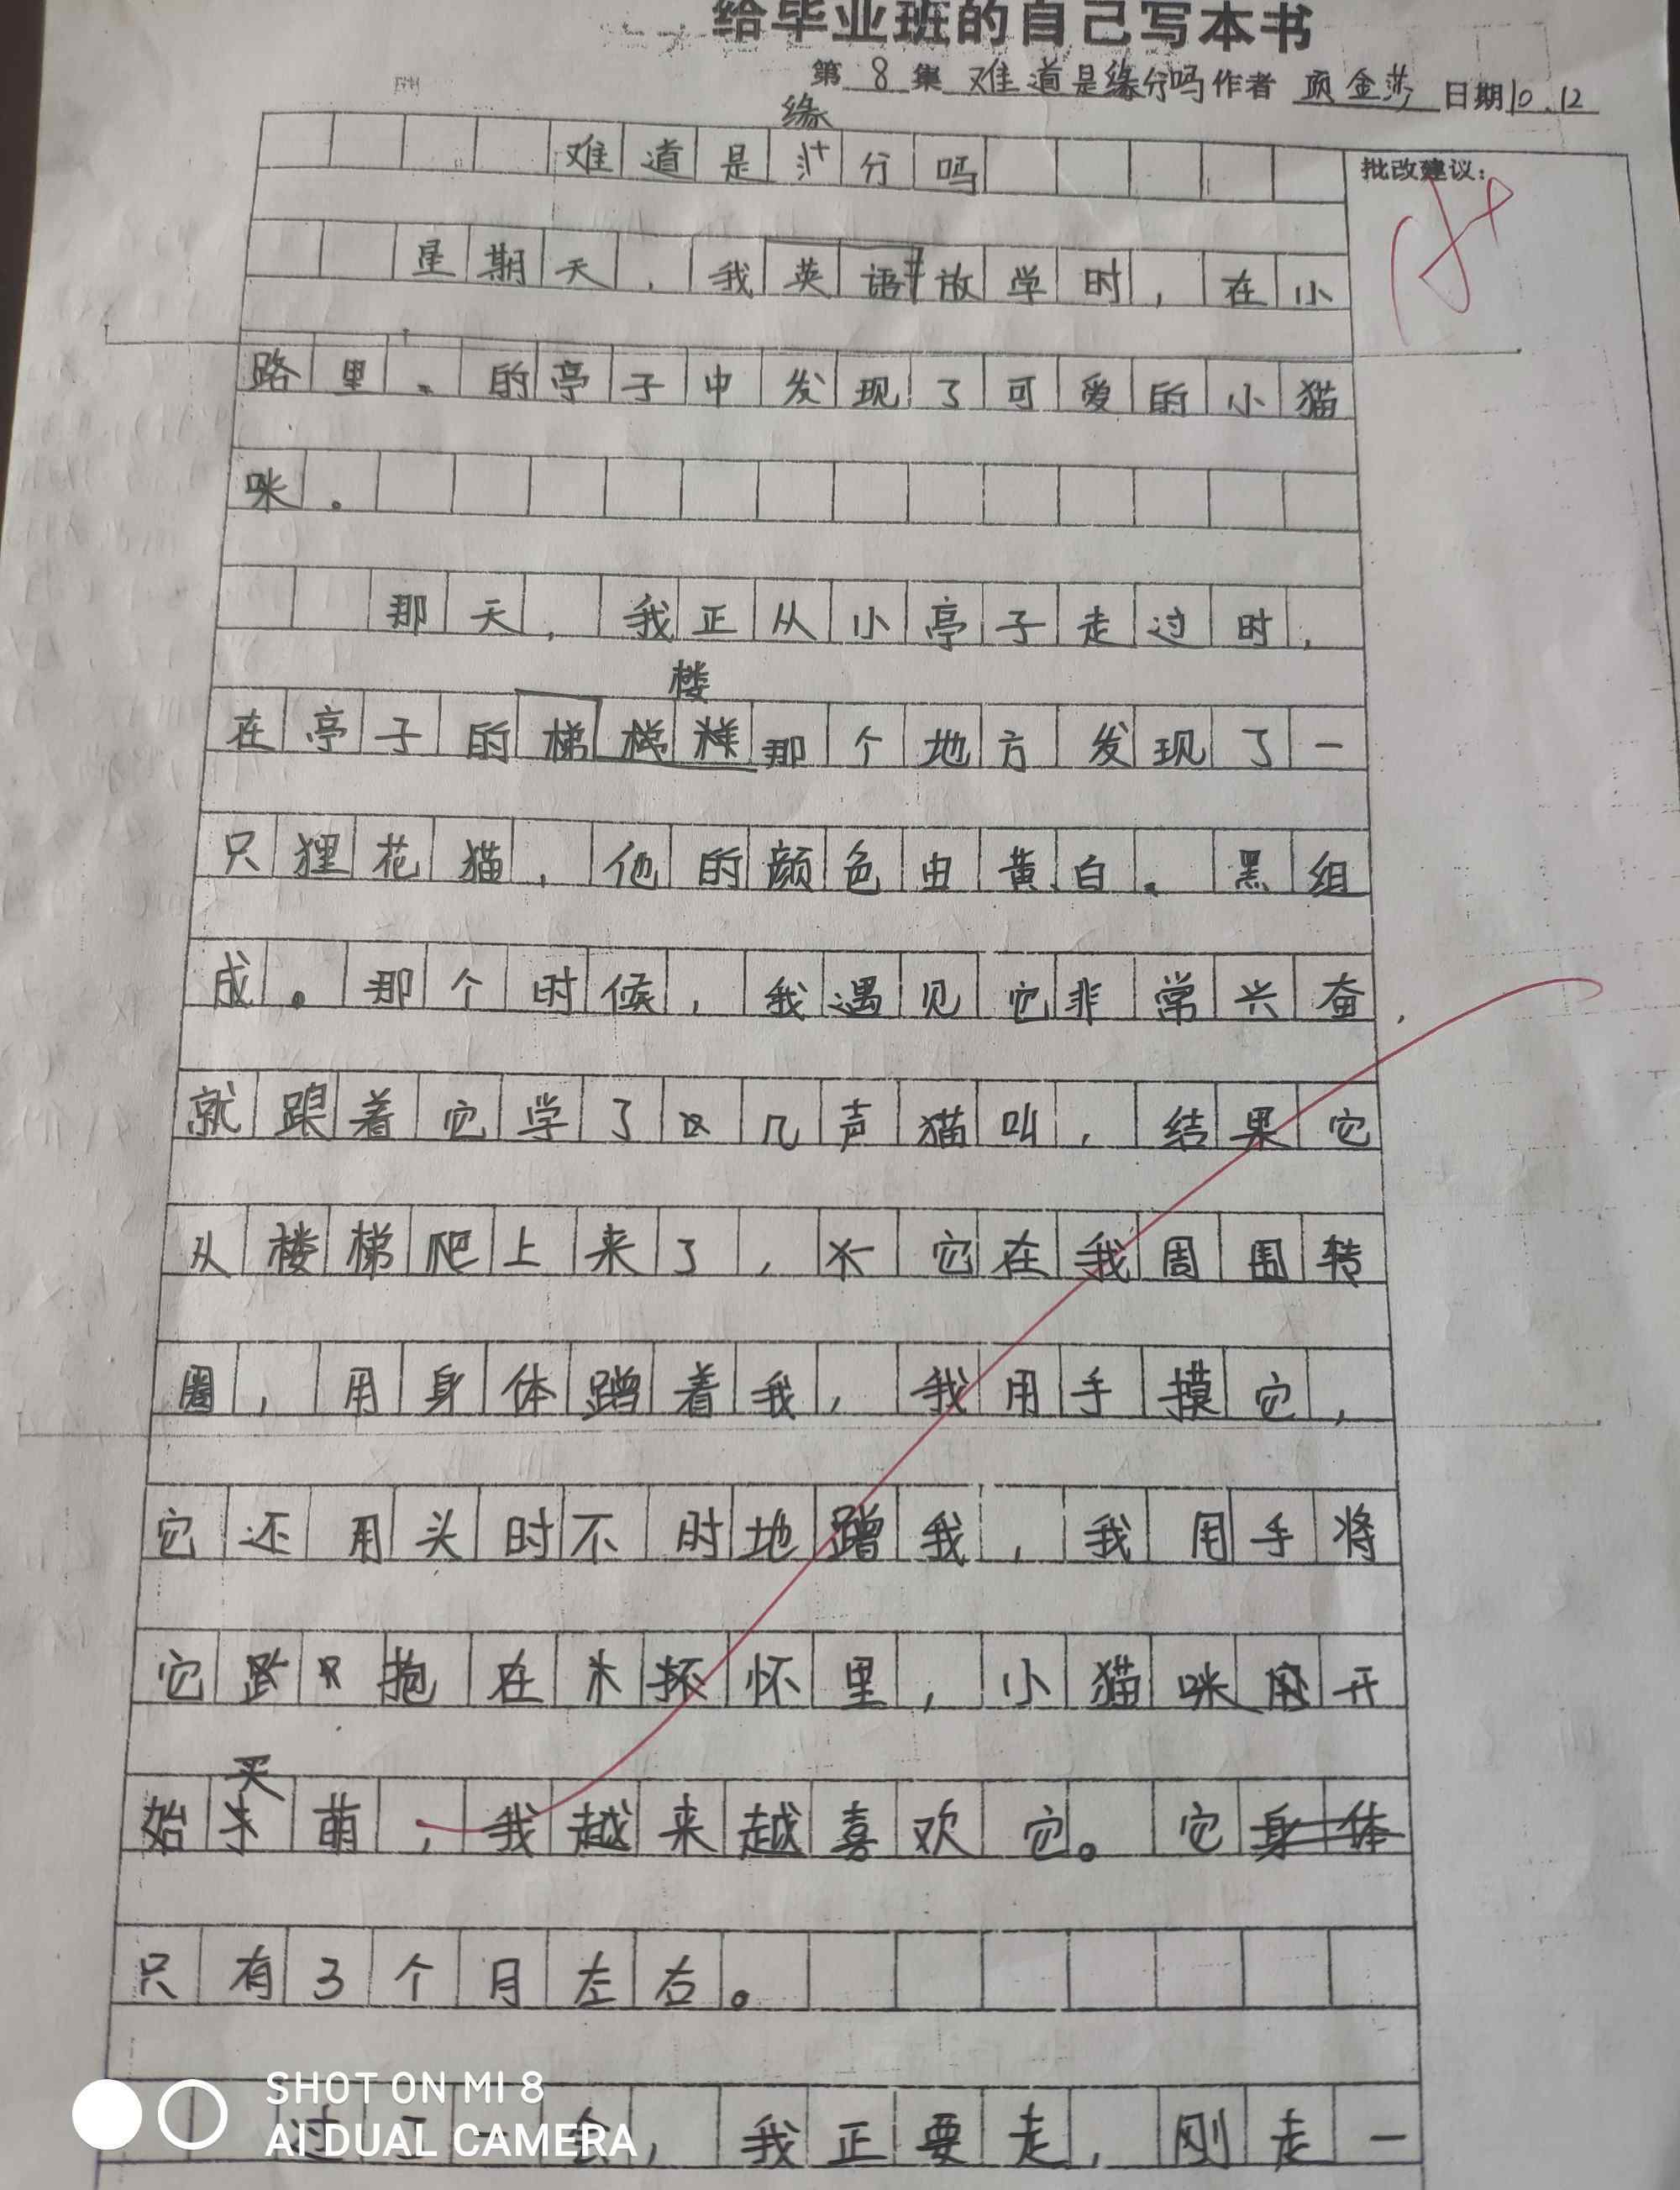 给毕业班的自己写本书
第 8 集 难道是缘分吗 作者 金莎 日期 10.12
缘
难道是分吗
批改建议:
星期天，我英语放学时，在小
路里、的亭子中发现了可爱的小猫
咪。
那天，我正从小亭子走过时，
楼
在亭子的梯梯楼那个地方发现了一
只狸花猫，他的颜色由黄白、黑组
成。那个时候，我遇见它非常兴奋，
就跟着它学了几声猫叫，结果它
从楼梯爬上来了，它在我周围转
圈，用身体蹭着我，我用手摸它，
它还用头时不时地蹭我，我用手将
它抱在怀里，小猫咪开
买
始萌，我越来越喜欢它。它身体
只有3个月左右。
过了一会，我正要走，刚走一
SHOT ON MI 8
AI DUAL CAMERA